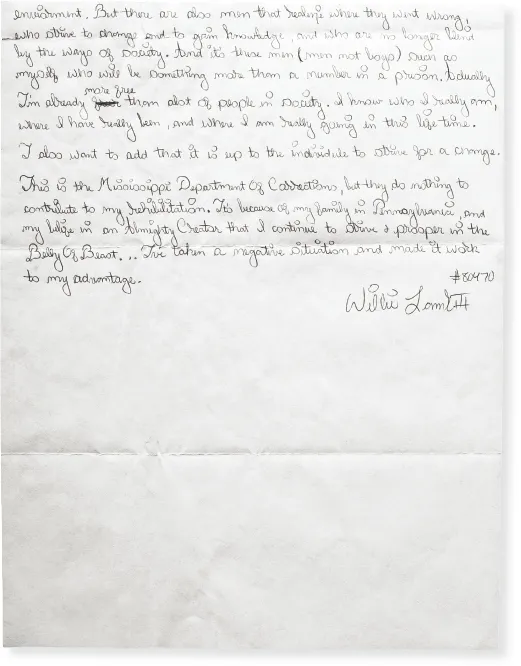 enviorment. But there are also men that realize where they went wrong,
who strive to change and to gain knowledge, and who are no longer blind
by the ways of society. And it's these men (men not boys) such as
myself who will be something more than a number in a prison. Actually
more free
I'm already than alot of people in society. I know who I really am,
where I have really been, and where I am really going in this life time.
I also want to add that it is up to the individule to strive for a change.
This is the Mississippi Department Of Corrections, but they do nothing to
contribute to my rehibilitation. It's because of my family in Pennsylvania, and
my belife in an Almighty Creator that I continue to strive & prosper in the
Belly Of Beast... I've taken a negative situation and made it work
to my advantage.
#80470
Willie Lamb III